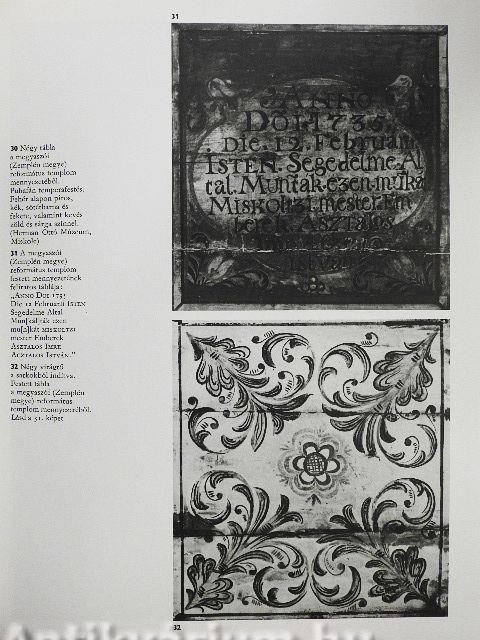 31
ANNO
DOI. 1735.
Die. 12. Februarii
ISTEN. Segedelme. Al
tal. Munfák. ezen. muka
MISKOLTZI. mester. Em
berek. ASZTALOS
30 Négy tábla
a megyaszói
(Zemplén megye)
református templom
mennyezetéből.
Puhafán temperafestés.
Fehér alapon piros,
kék, sötétbarna és
fekete, valamint kevés
zöld és sárga színnel.
(Herman Ottó Múzeum,
Miskolc)
31 A megyaszói
(Zemplén megye)
református templom
festett mennyezetének
feliratos táblája:
„ANNO DOI 1735
Die 12 Februarii ISTEN
Segedelme Altal
Mun[kál]ják ezen
mu[n]kát MISKOLTZI
mester Emberek
ASZTALOS IMRE
ASZTALOS ISTVÁN.”
32 Négy virágtő
a sarkokból indítva.
Festett tábla
a megyaszói (Zemplén
megye) református
templom mennyezetéből.
Lásd a 31. képet
32
Antikvarium.hu